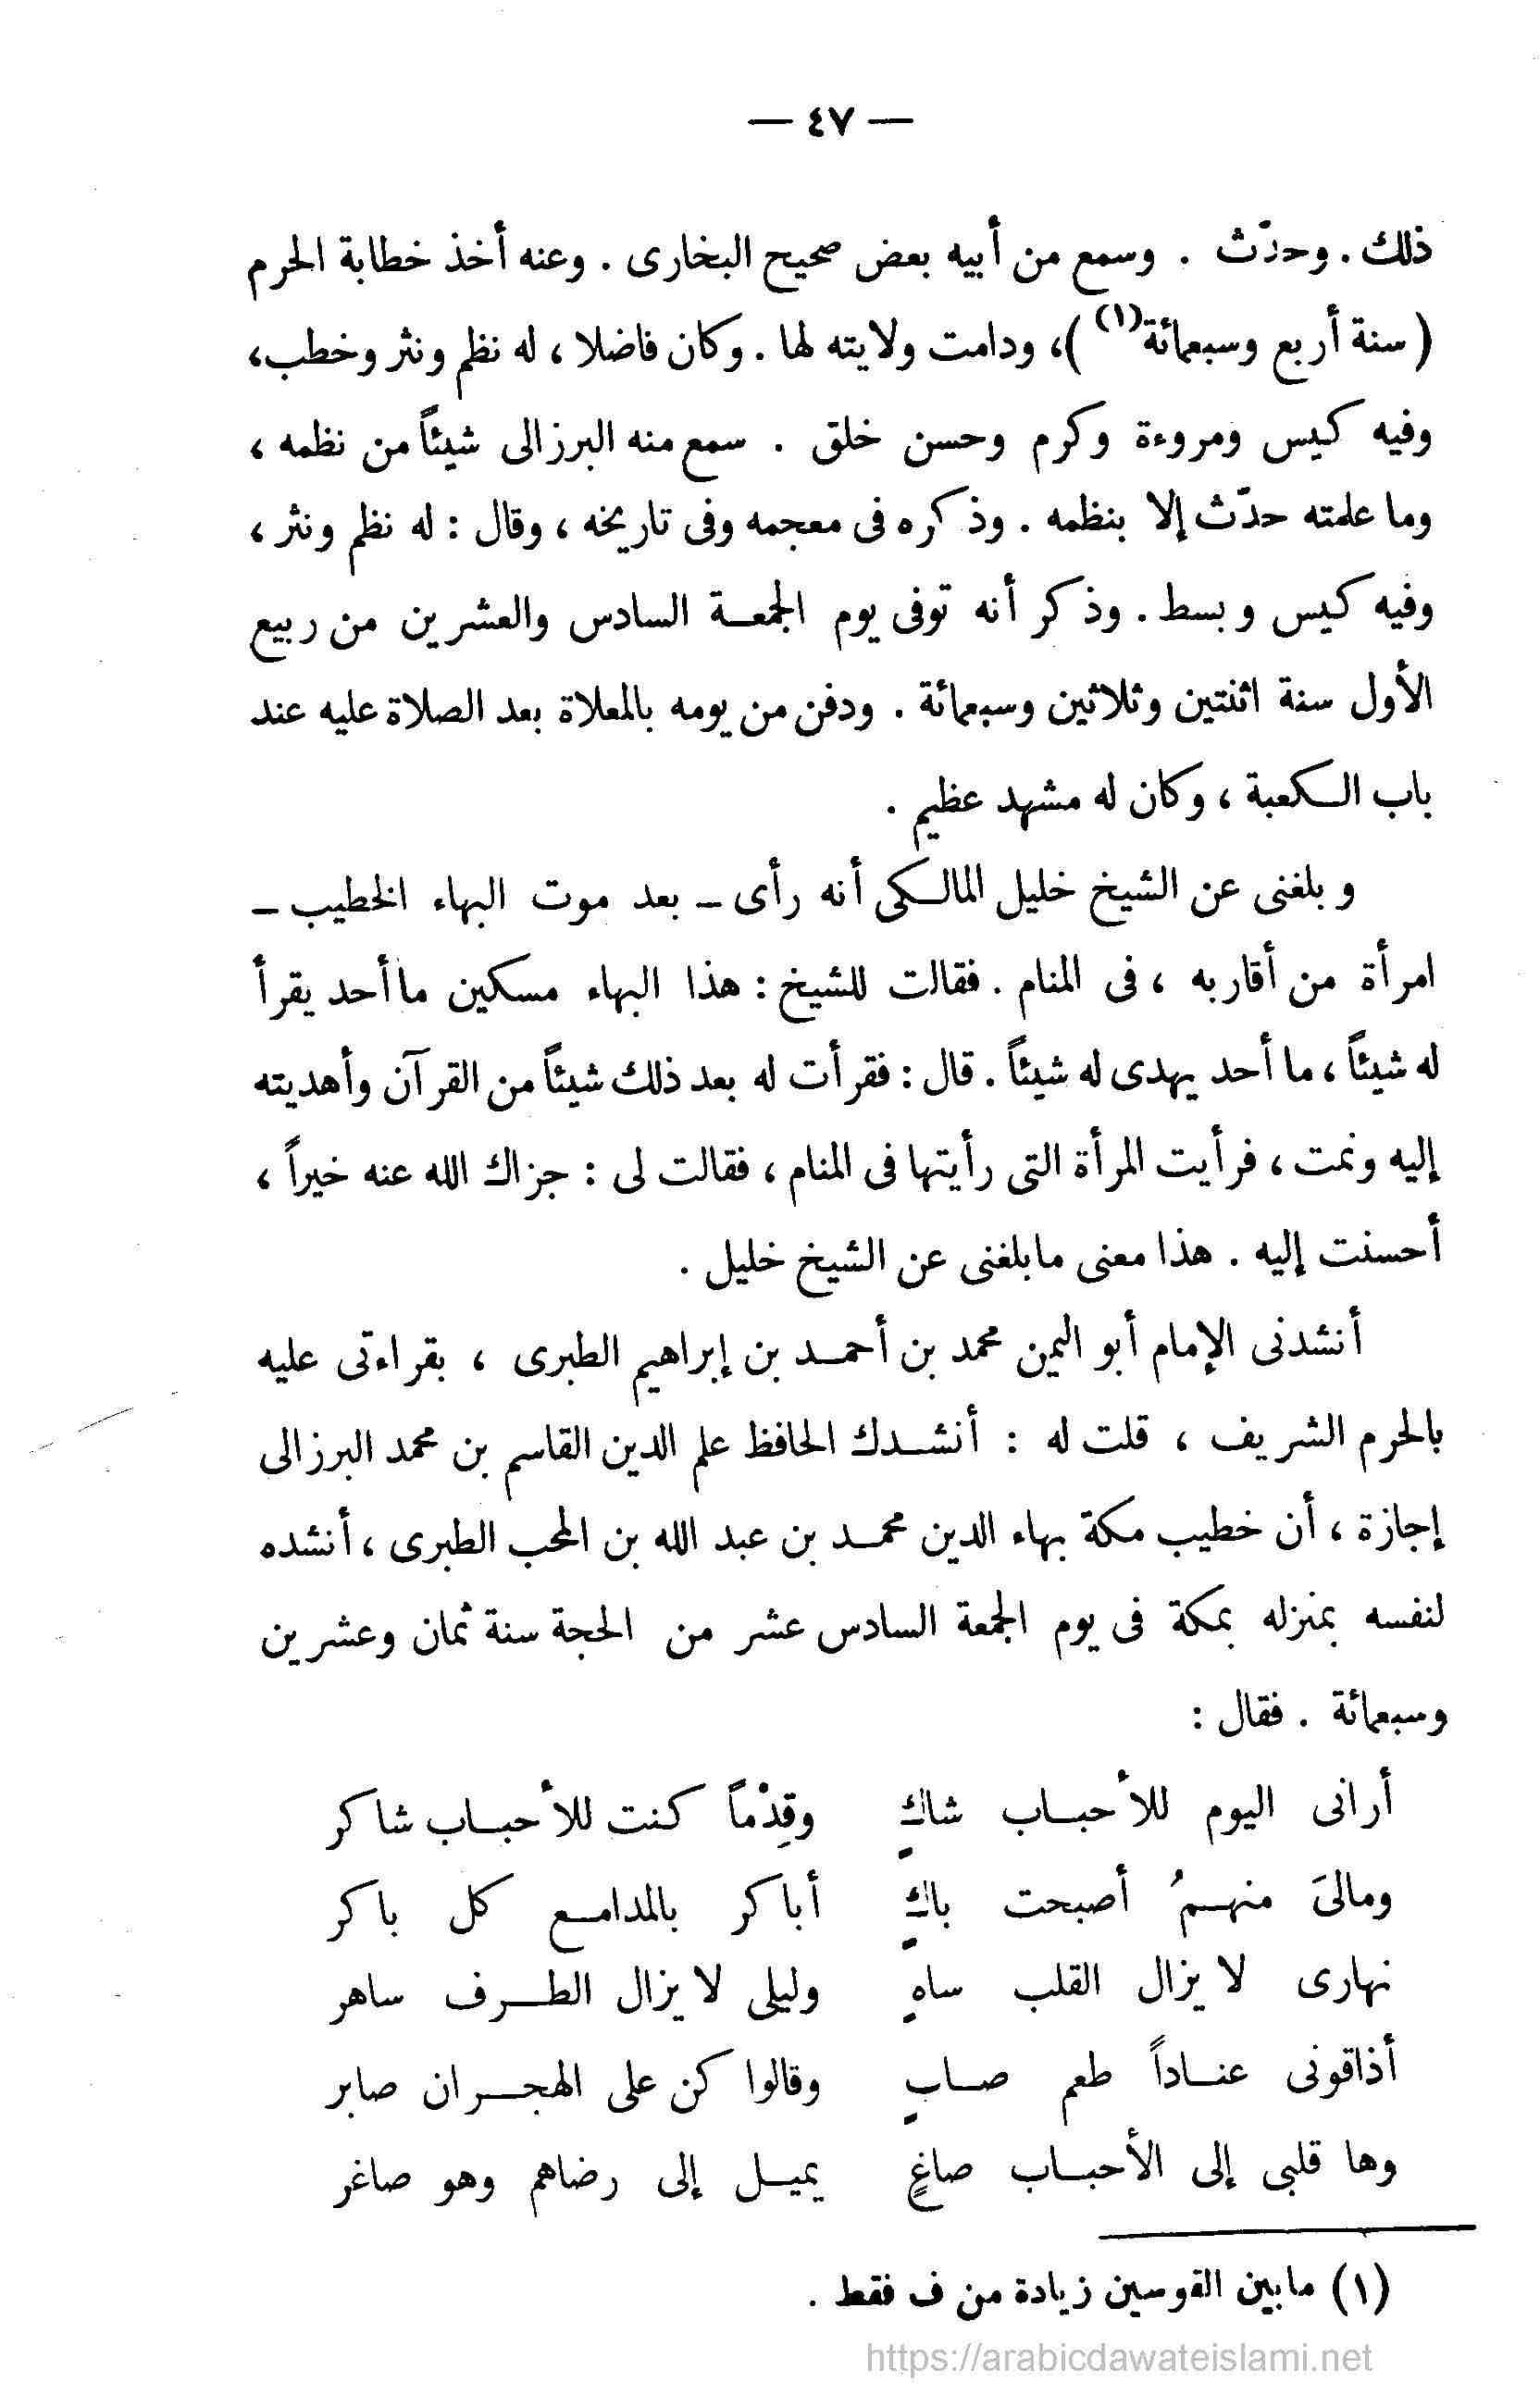 — ٤٧ —
ذلك . وحدّث . وسمع من أبيه بعض صحيح البخارى . وعنه أخذ خطابة الحرم
( سنة أربع وسبعمائة(١) )، ودامت ولايته لها . وكان فاضلا ، له نظم ونثر وخطب،
وفيه كيس ومروءة وكرم وحسن خلق . سمع منه البرزالى شيئاً من نظمه ،
وما علمته حدّث إلا بنظمه . وذكره فى معجمه وفى تاريخه ، وقال : له نظم ونثر ،
وفيه كيس وبسط . وذكر أنه توفى يوم الجمعة السادس والعشرين من ربيع
الأول سنة اثنتين وثلاثين وسبعمائة . ودفن من يومه بالمعلاة بعد الصلاة عليه عند
باب الكعبة ، وكان له مشهد عظيم .
وبلغنى عن الشيخ خليل المالكى أنه رأى ـ بعد موت البهاء الخطيب ـ
امرأة من أقاربه ، فى المنام . فقالت للشيخ : هذا البهاء مسكين ماأحد يقرأ
له شيئاً ، ما أحد يهدى له شيئاً . قال : فقرأت له بعد ذلك شيئاً من القرآن وأهديته
إليه ونمت ، فرأيت المرأة التى رأيتها فى المنام ، فقالت لى : جزاك الله عنه خيراً ،
أحسنت إليه . هذا معنى مابلغنى عن الشيخ خليل .
أنشدنى الإمام أبو اليمن محمد بن أحمد بن إبراهيم الطبرى ، بقراءتى عليه
بالحرم الشريف ، قلت له : أنشدك الحافظ علم الدين القاسم بن محمد البرزالى
إجازة ، أن خطيب مكة بهاء الدين محمد بن عبد الله بن المحب الطبرى ، أنشده
لنفسه بمنزله بمكة فى يوم الجمعة السادس عشر من الحجة سنة ثمان وعشرين
وسبعمائة . فقال :
أرانى اليوم للأحباب شاكٍ وقِدْماً كنت للأحباب شاكر
ومالىَ منهمُ أصبحت باكٍ أباكر بالمدامع كل باكر
نهارى لا يزال القلب ساهٍ وليلى لا يزال الطرف ساهر
أذاقونى عناداً طعم صابٍ وقالوا كن على الهجران صابر
وها قلبى إلى الأحباب صاغٍ يميل إلى رضاهم وهو صاغر
(١) مابين القوسين زيادة من ف فقط .
https://arabicdawateislami.net